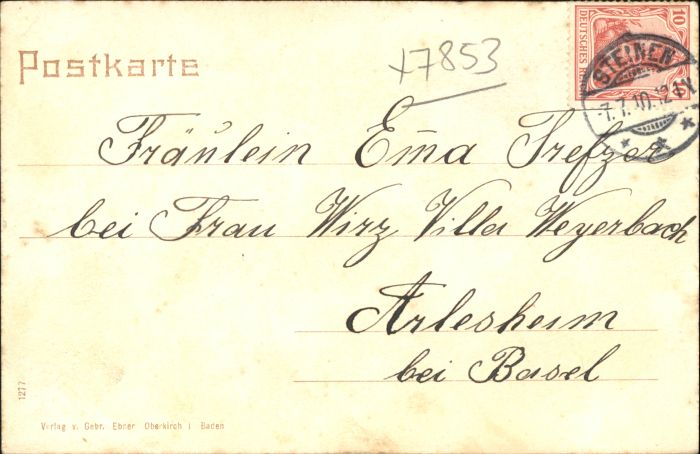 Postkarte
+7853
10
DEUTSCHES R
STEINEN
-7.7.10.12-1V
Fräulein Em̅a Trefzer
bei Frau Wirz Villa Weyerbach
Arlesheim
bei Basel
1277
Verlag v. Gebr. Ebner Oberkirch i Baden